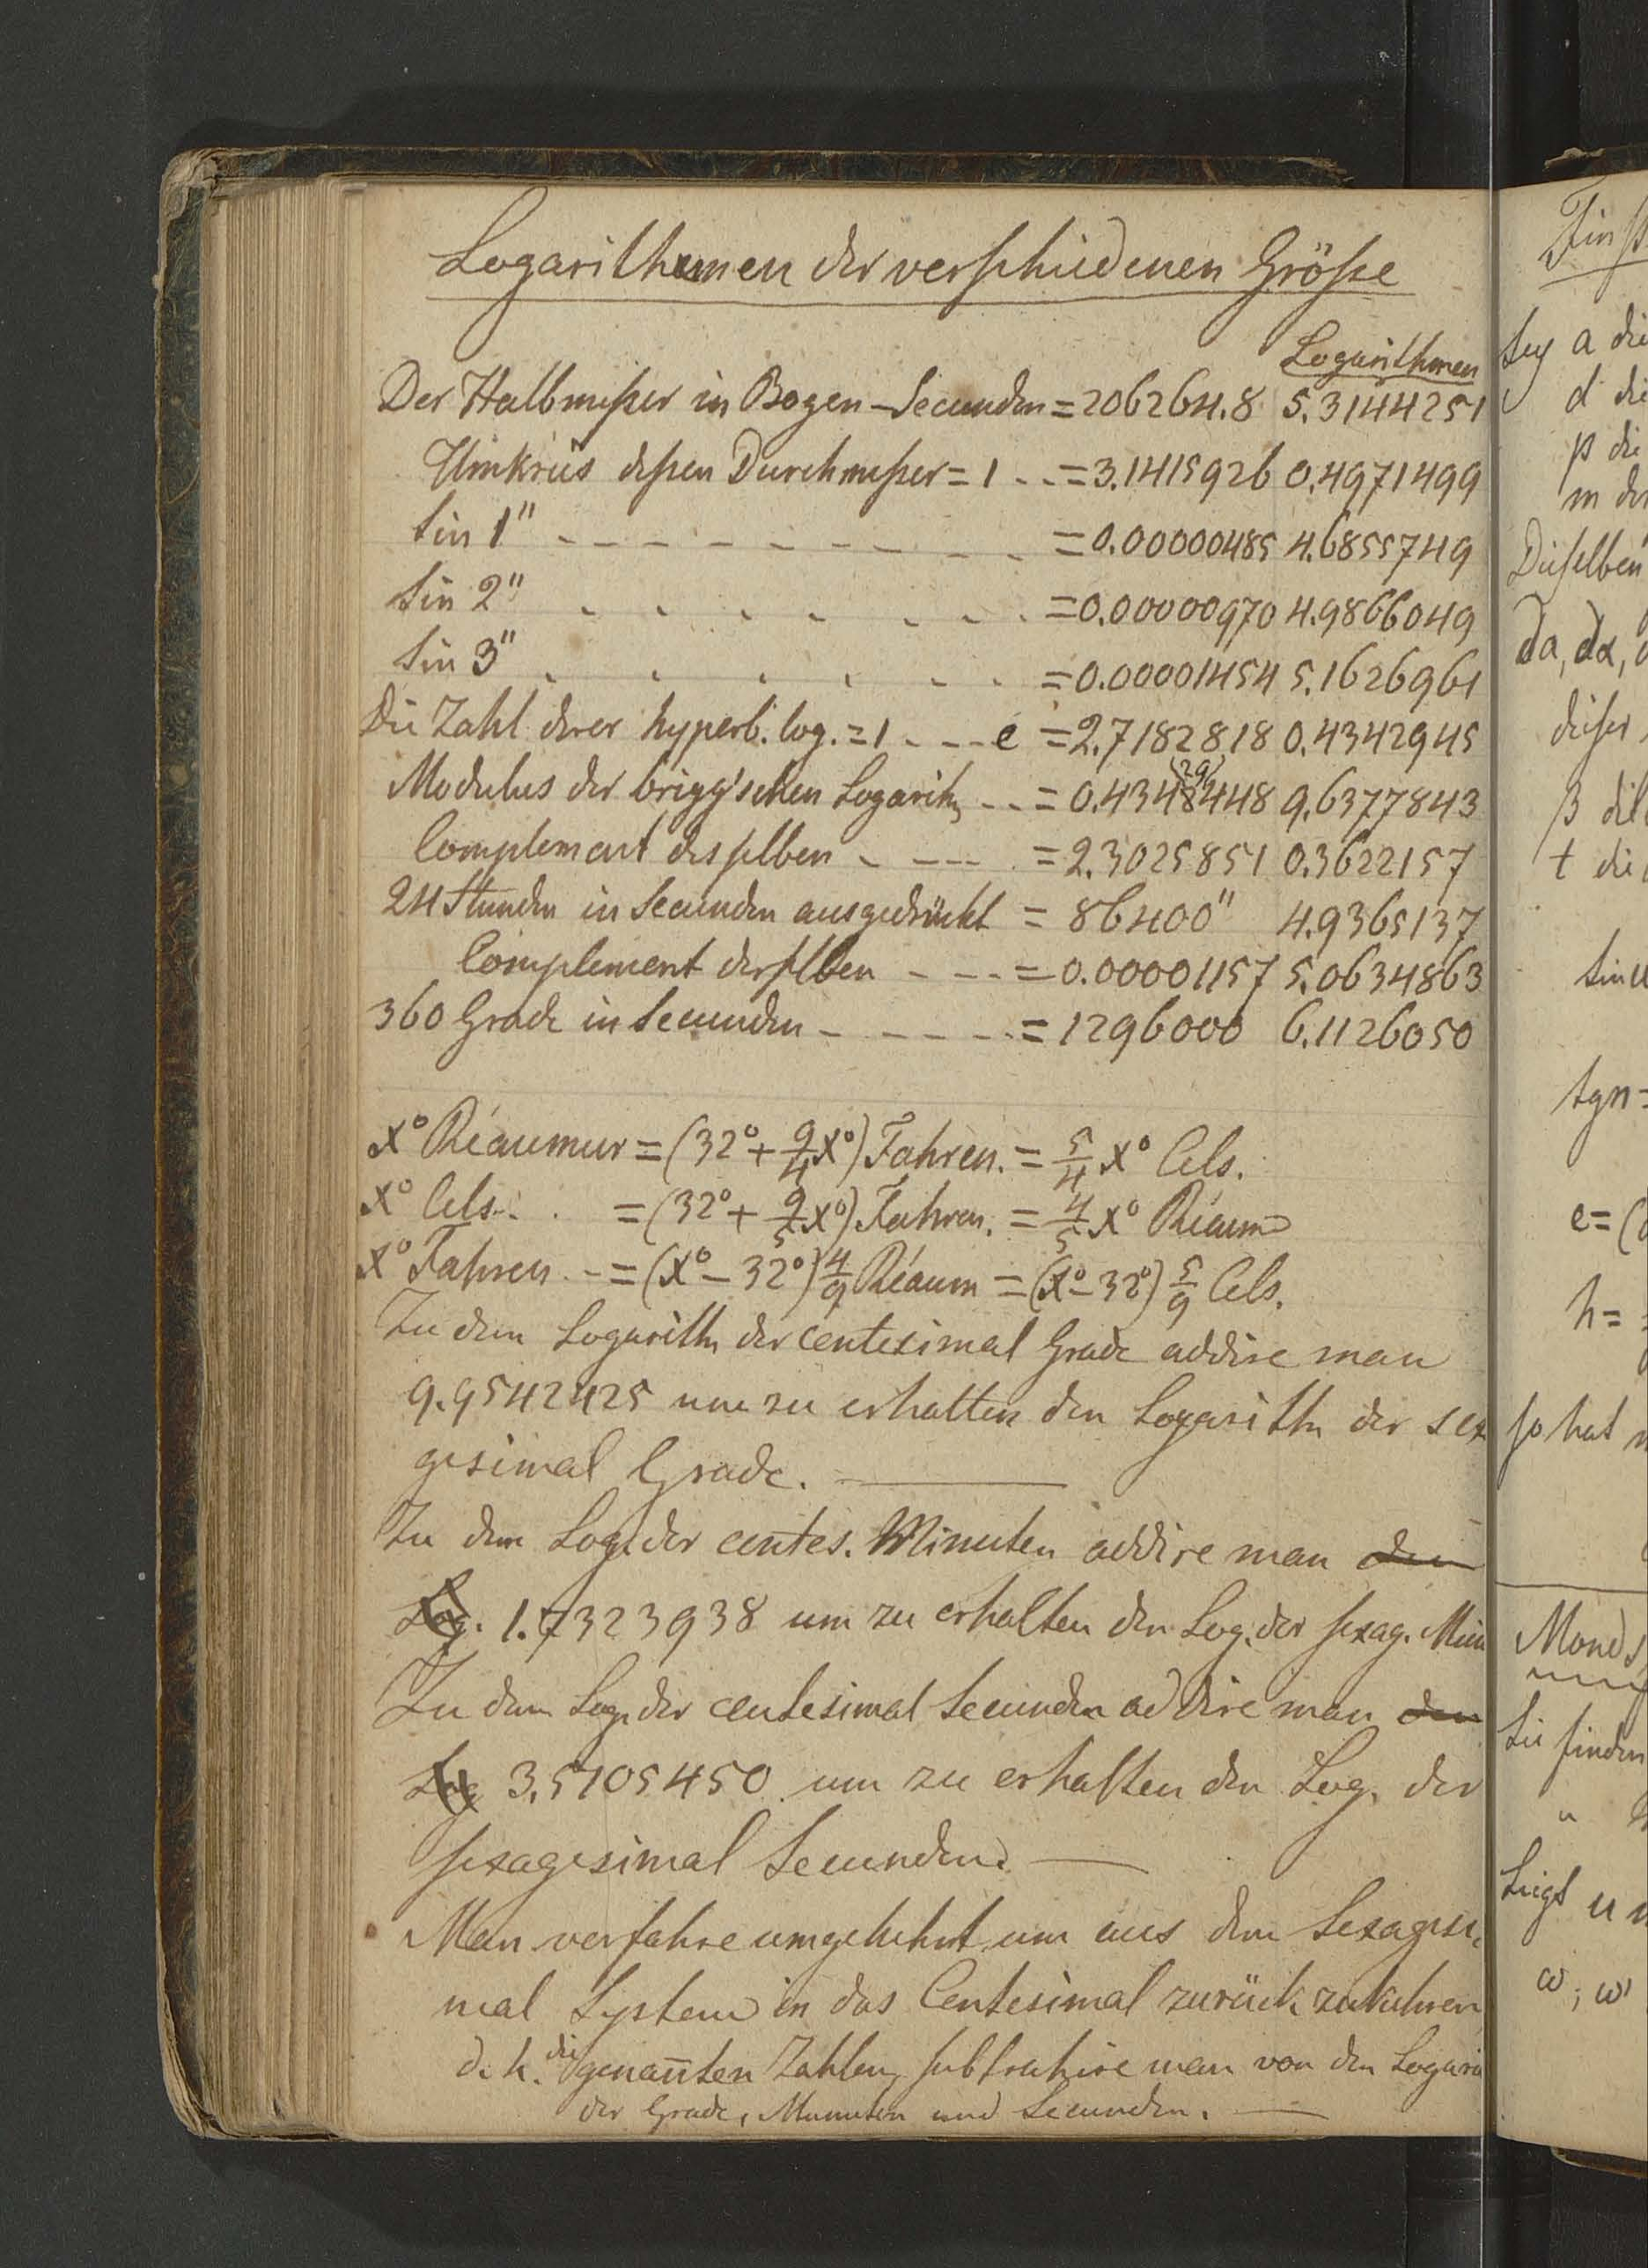 Logarithmen der verschiedenen Größe
Logarithmen
Der Halbmeßer in Bogen-Secunden = 206264.8 5.3144251
Umkreis deßen Durchmeßer = 1 - - = 3.1415926 0.4971499
Sin 1" - - - - - - - - - = 0.00000485 4.6855749
Sin 2" - - - - - - - = 0.00000970 4.9866049
Sin 3" - - - - - - - = 0.00001454 5.1626961
Die Zahl derer hyperb. log. = 1 - - - e = 2.7182818 0.4342945
(29)
Modulus der brigg'schen Logarith - - = 0.43428448 9.6377843
Complement desselben - - - - = 2.3025851 0.3622157
24 Stunden in Secunden ausgedrückt = 86400" 4.9365137
Complement derselben - - - = 0.00001157 5.0634863
360 Grade in Secunden - - - - - = 1296000 6.1126050
x° Réaumur = (32° + 9/4 x°) Fahren. = 5/4 x° Cels.
x° Cels. . . = (32° + 9/5 x°) Fahren. = 4/5 x° Réaum
x° Fahren - = (x° - 32°) 4/9 Réaum = (x° - 32°) 5/9 Cels.
Zu dem Logarith der centesimal Grade addire man
9.9542425 um zu erhalten den Logarith der sex
gesimal Grade. —
Zu dem Log. der centes. Minuten addire man den
Log. 1.7323938 um zu erhalten den Log. der sexag. Min
Zu dem Log. der centesimal Secunden addire man den
Log 3.5105450 um zu erhalten den Log. der
sexagesimal Secunden. —
Man verfahre umgekehrt um aus dem Sexagesi
mal System in das Centesimal zurück zukehren
d. h. die genan̄ten Zahlen subtrahire man von den Logari
der Grade, Minuten und Secunden. —
sey a die
d die
p die
m der
Dieselben
da, dα,
dieser
β die
t die
sin u
tgn =
e = (
h =
so hat
Mond
Sie finden
"
Liegt u
ω, ω'